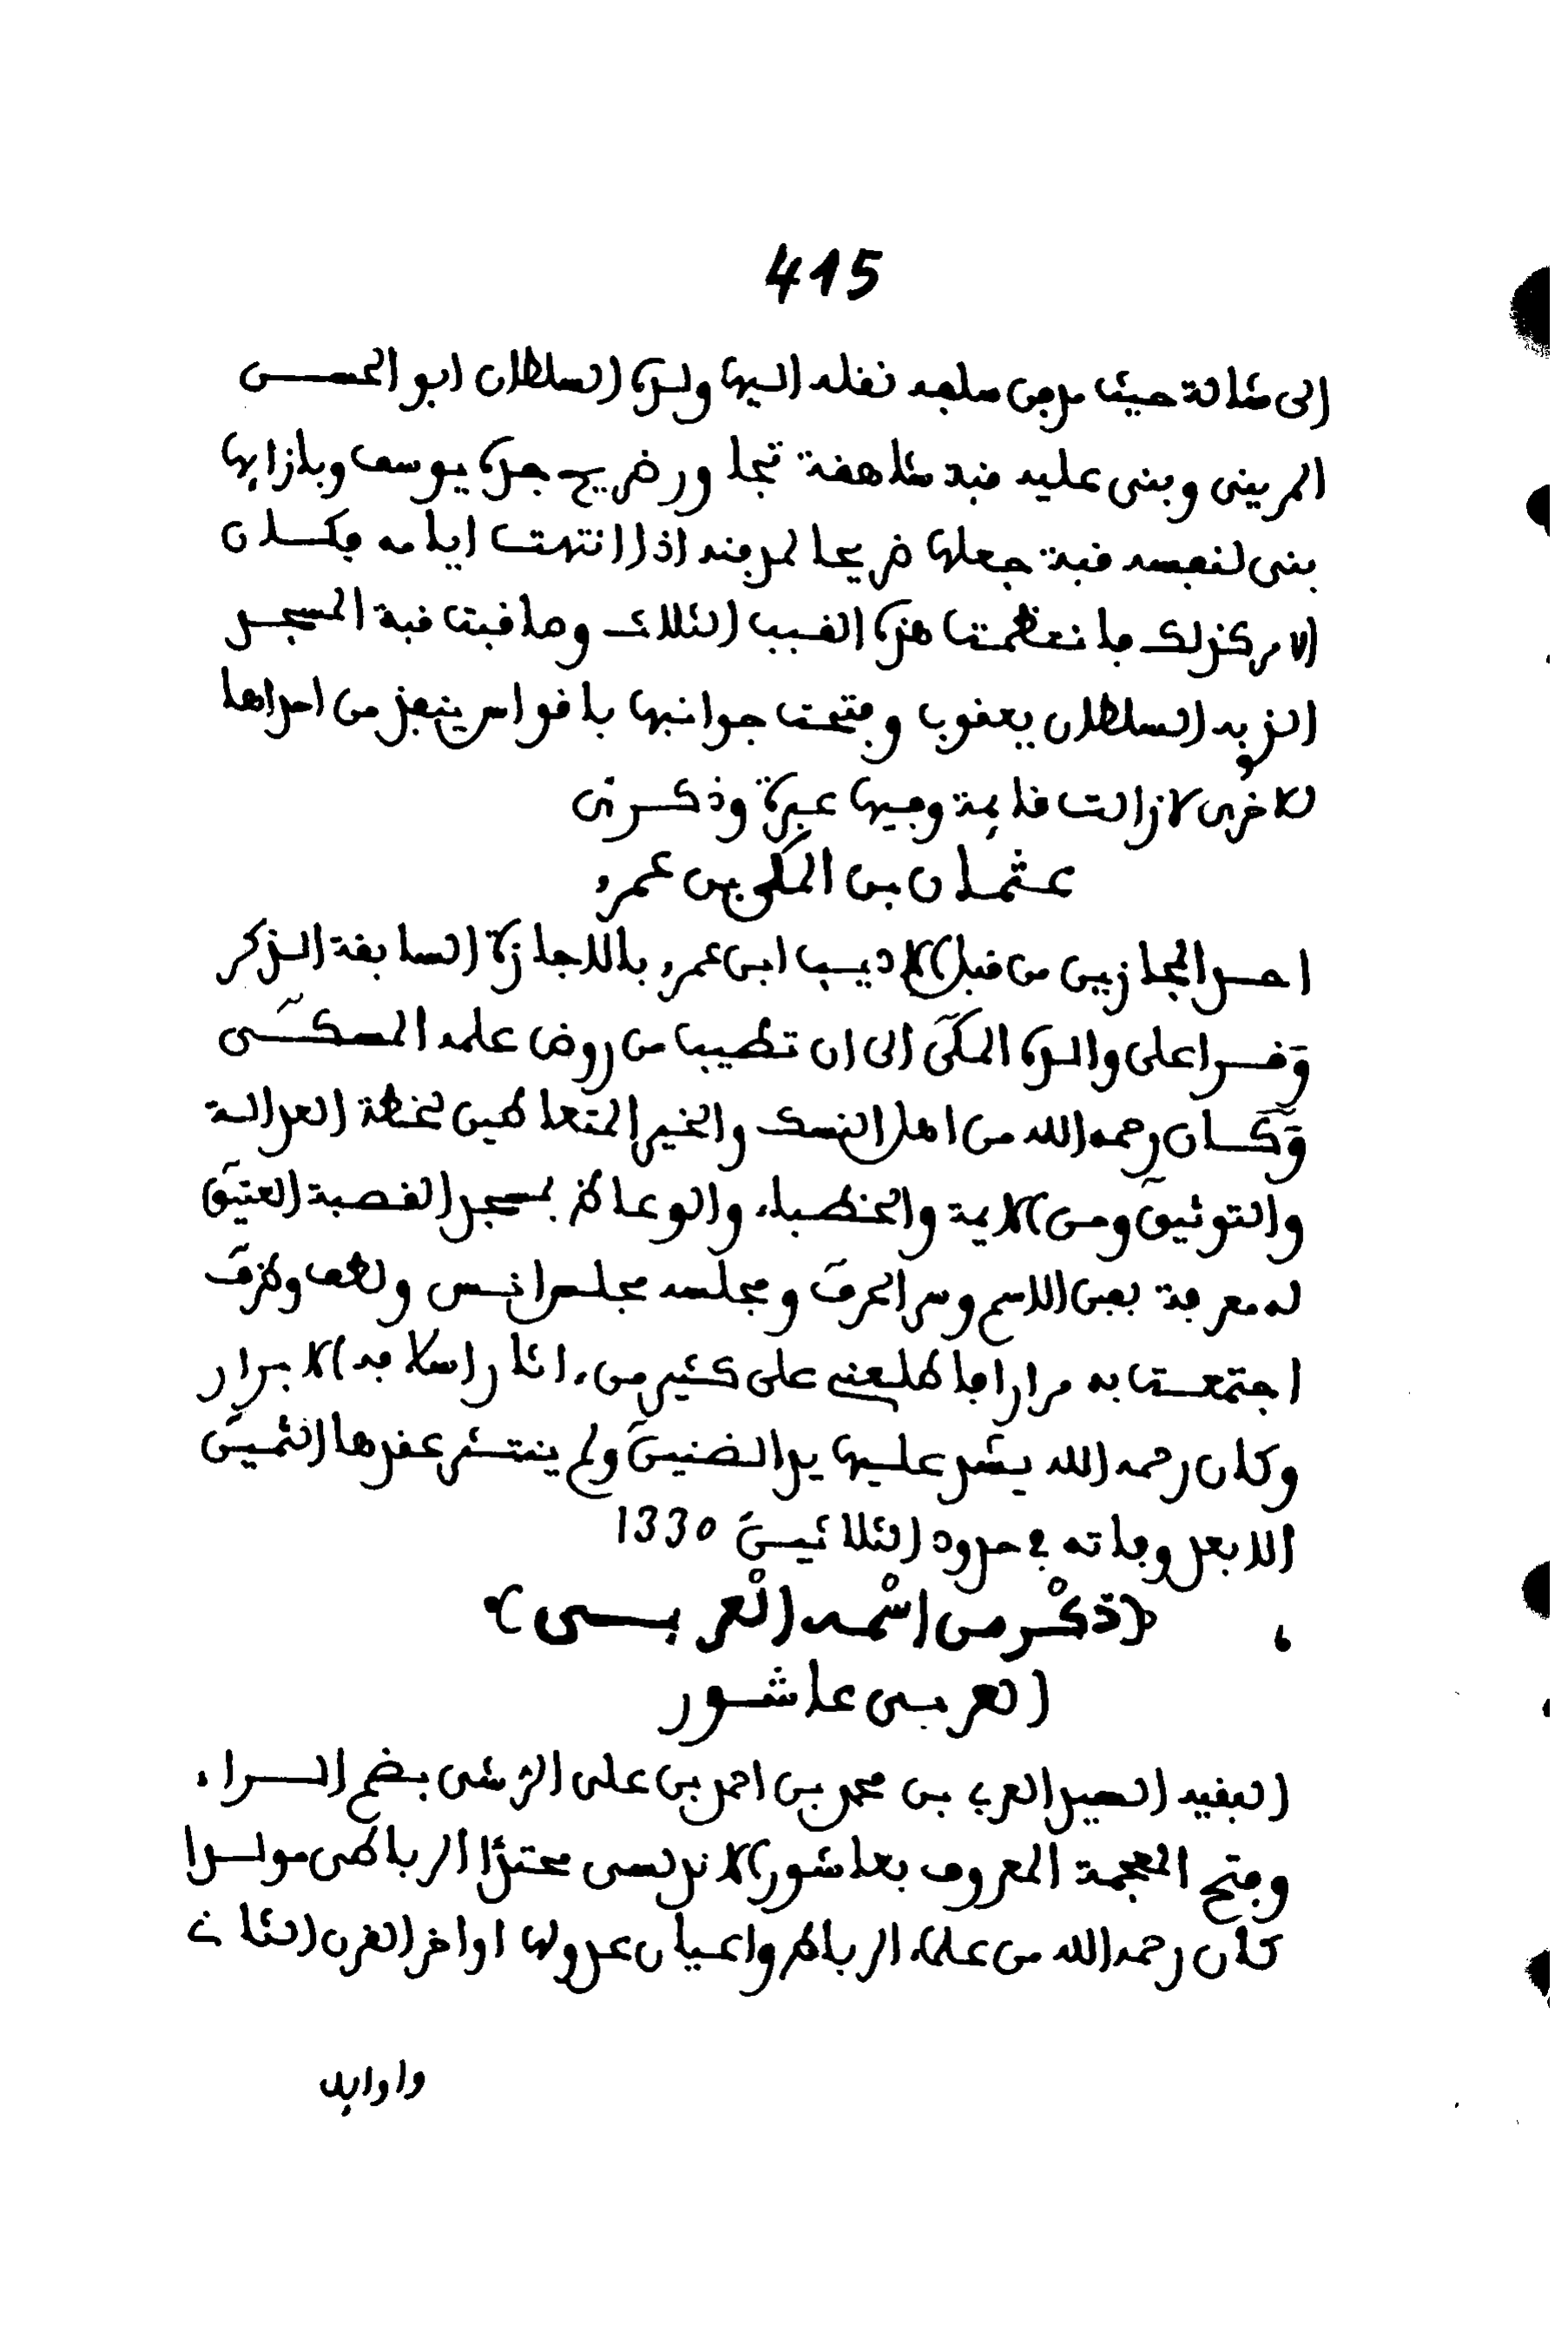 415
إلى شالة حيث مدفن سلفه نقله إليها ولده السلطان أبو الحسن
المريني وبنى عليه قبة شاهقة تجاور ضريح جده يوسف وبازائها
بنى لنفسه قبة جعلها ضريحا لمرقده اذا انتهت ايامه فكان
الامر كذلك فانتظمت هذه القبب الثلاث وصاقبت قبة المسجد
الذي به السلطان يعقوب وفتحت جوانبها باقواس ينفذ من احداها
للاخرى لازالت قائمة وفيها عبرة وذكرى
عثمان بن المكي بن عمرو
احد المجازين من قبل الاديب ابن عمرو بالاجازة السابقة الذكر
وقرا على والده المكي الى ان تطيب من روض علمه المسكي
وكان رحمه الله من اهل النسك والخير المتعاطين لخطة العدالة
والتوثيق ومن الايمة والخطباء والوعاظ بمسجد القصبة العتيق
له معرفة بفن الاسم وسر الحرف ومجلسه مجلس انس ولطف وظرف
اجتمعت به مرارا فاطلعني على كثير من اثار اسلافه الابرار
وكان رحمه الله يشد عليها يد الضنين ولم ينتثر عقدها الثمين
الا بعد وفاته في حدود الثلاثين 1330
(ذكر من اسمه العربي)
العربي عاشور
الفقيه السيد العربي بن محمد بن احمد بن علي الرشى بضم الراء
وفتح المعجمة المعروف بعاشور الاندلسي محتدا الرباطي مولدا
كان رحمه الله من علماء الرباط واعيان عدولها اواخر القرن الثالث
واوايل